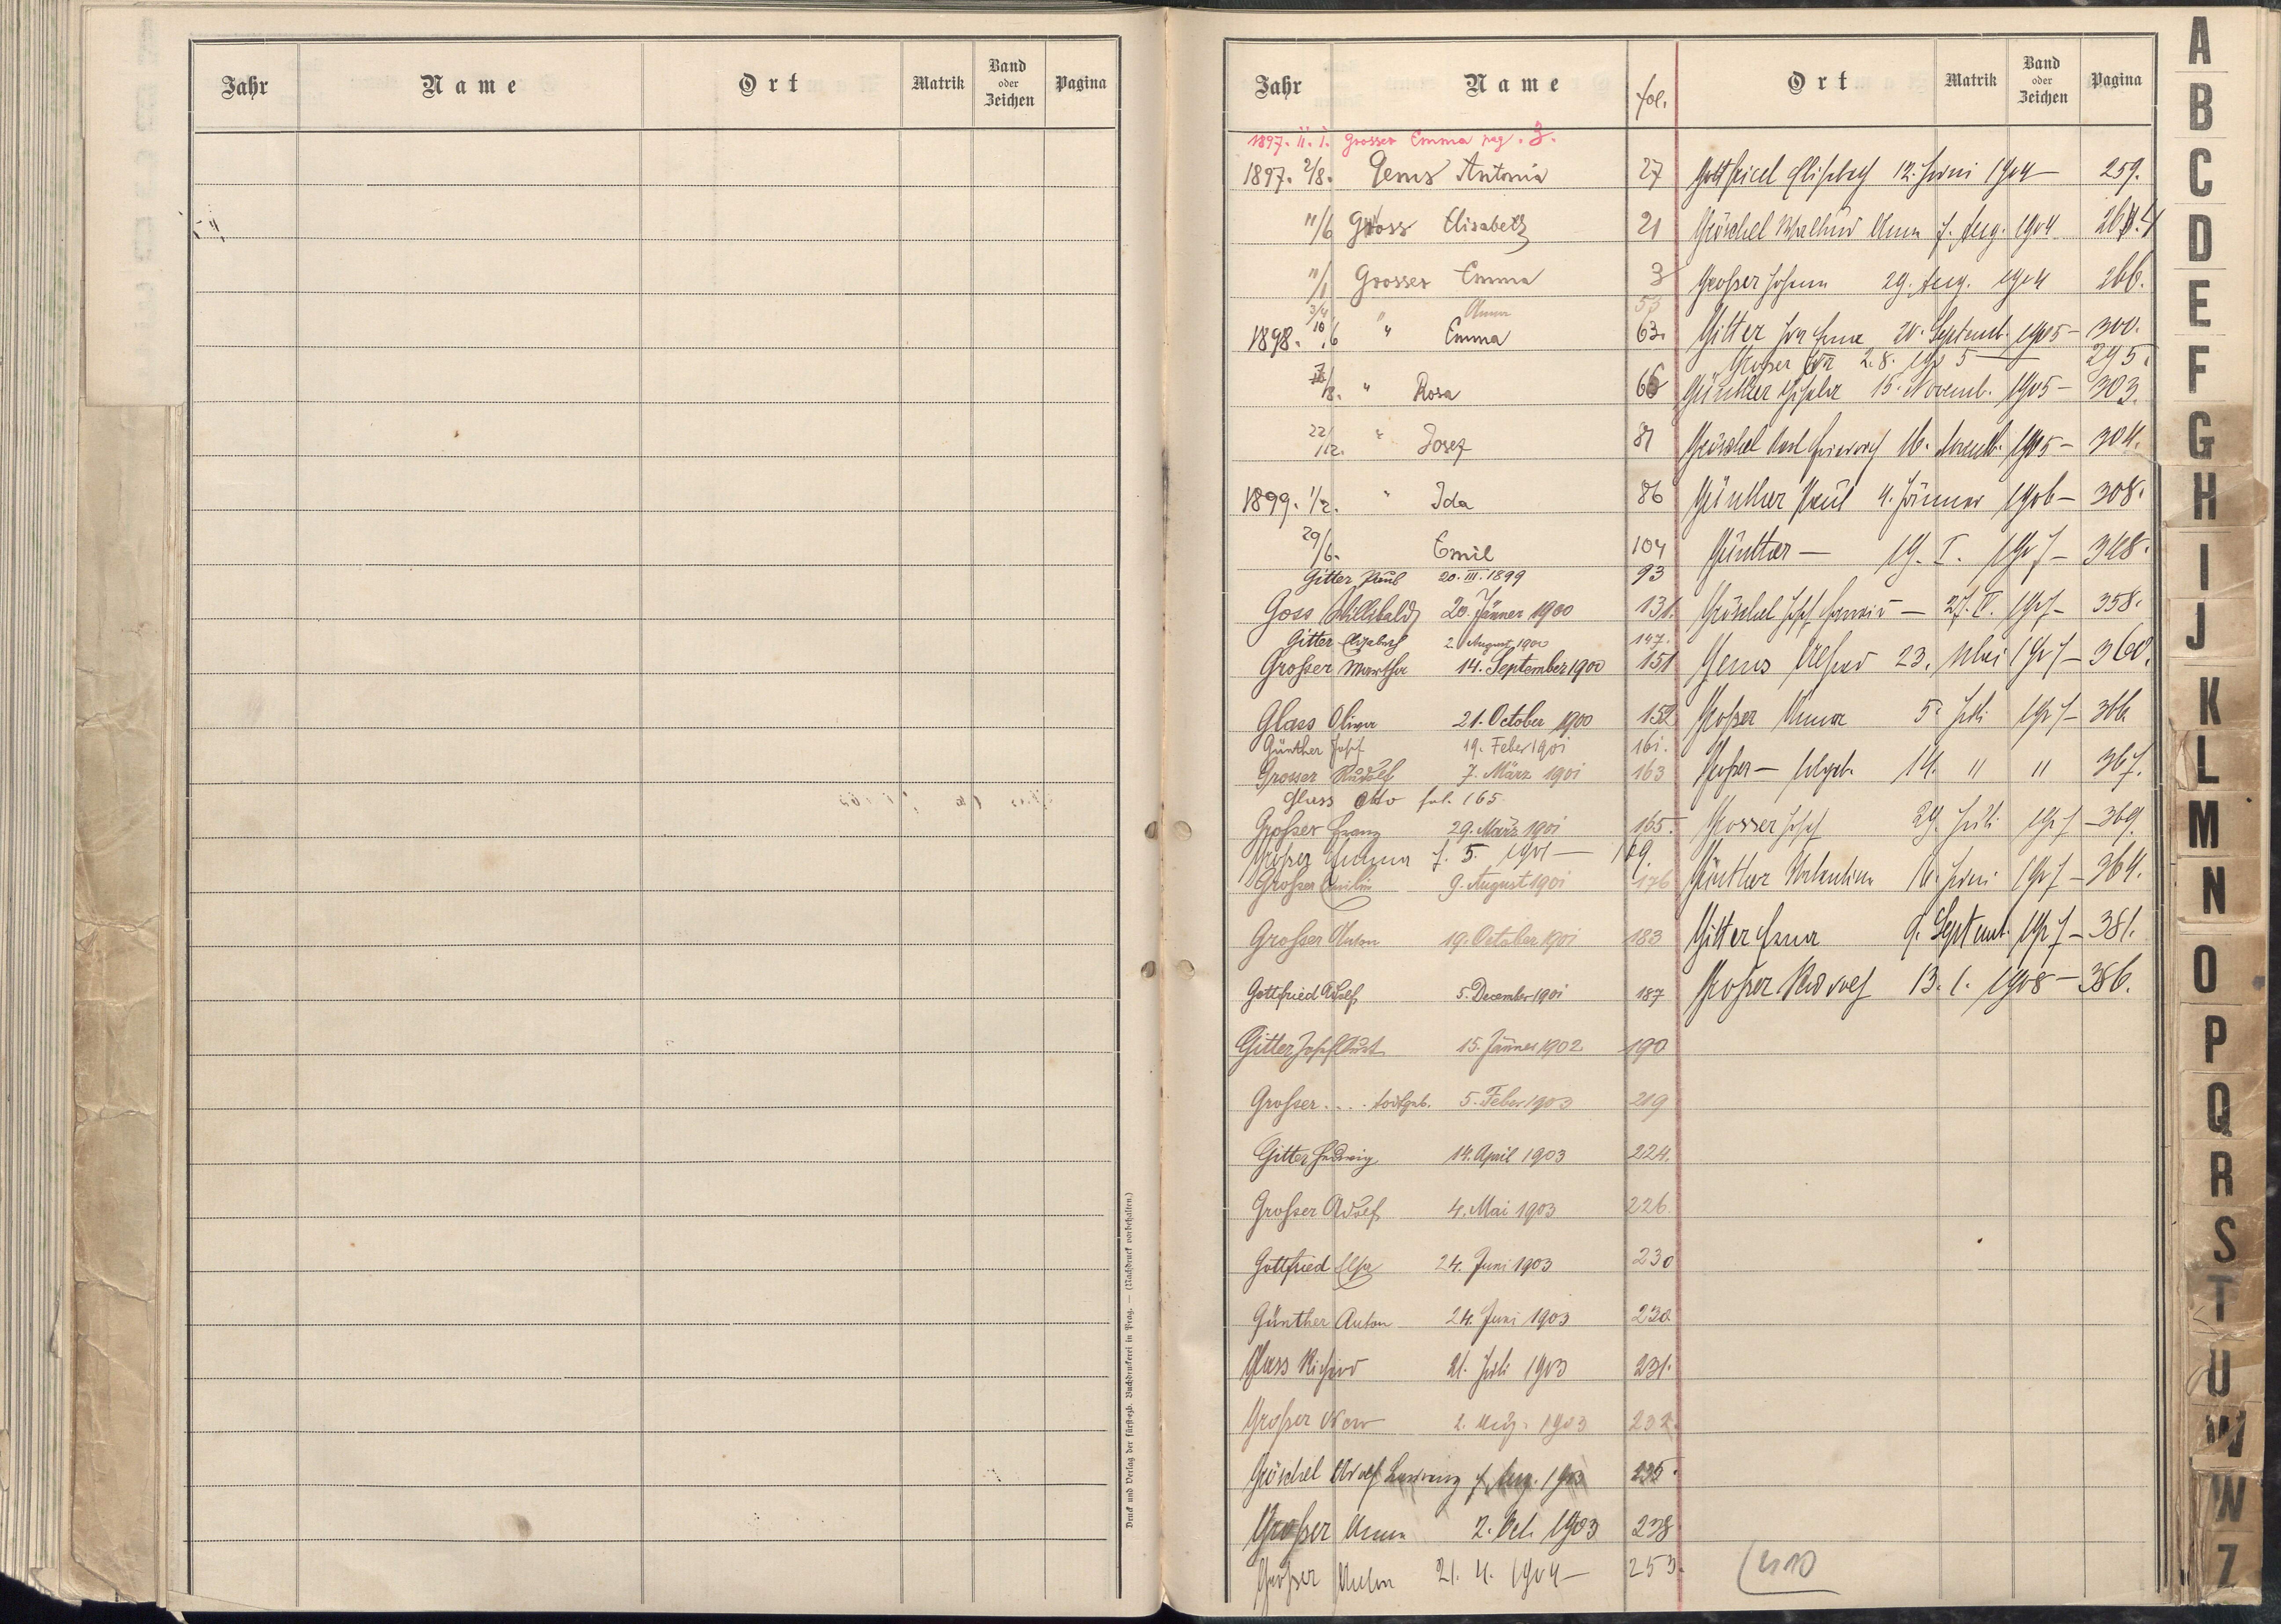 Jahr Name Ort Matrik Band oder Zeichen Pagina
Druck und Verlag der fürsterzb. Buchdruckerei in Prag. — (Nachdruck vorbehalten.)
Jahr Name fol.
1897. 11. 1. Grosser Emma pag. 3.
1897. 2/8. Gems Antonia 27
11/6 Gross Elisabeth 21
11/1 Grosser Emma 3
3/4 " Anna 53
1898. 10/6 " Emma 63.
/8. " Rosa 66
22/12. " Josef 81
1899. 1/2. " Ida 86
29/6. Emil 104
Gitter Paul 20. III. 1899 93
Goss Willibald 20. Jänner 1900 131.
Gitter Elisabeth 2. August 1900 147.
Grosser Martha 14. September 1900 151
Glass Oliva 21. October 1900 152
Günther Josef 19. Feber 1901 161.
Grosser Rudolf 7. März 1901 163
Glass Otto fol. 165
Großer Franz 29. März 1901 165.
Großer Emma 7. 5. 1901 — 169.
Großer Emilie 9. August 1901 176
Großer Anton 19. October 1901 183
Gottfried Adolf 5. December 1901 187
Gitter Josef 15. Jänner 1902 190
Großer . . . . todtgeb. 5. Feber 1903 219
Gitter Hedwig 14. April 1903 224.
Großer Adolf 4. Mai 1903 226.
Gottfried Elsa 24. Juni 1903 230
Günther Anton 24. Juni 1903 230
Glass Richard 21. Juli 1903 231.
Großer 2. Aug. 1903 232.
Göschel Adolf 7. Aug. 1903 235.
Großer Anna 2. Oct. 1903 238
Großer Anton 21. 4. 1904 — 253.
Ort Matrik Band oder Zeichen Pagina
Gottfried Elisabeth 12. Juni 1904 — 259.
Göschel Anna 7. Aug. 1904 264
Großer Johann 29. Aug. 1904 266.
Gitter 20. Septemb. 1905 — 300.
Großer 2. 8. 1905 — 295.
Günther 15. Novemb. 1905 — 303.
Göschel Karl 16. Novemb. 1905 — 304.
Günther Paul 4. Jänner 1906 — 308.
Günther — 19. I. 1907 — 348.
Göschel Josef — 27. IV. 1907 — 358.
Gems 23. Mai 1907 — 360.
Großer Anna 5. Juli 1907 — 366
Großer — 14. " " 367.
Grosser Josef 29. Juli 1907 — 369.
Günther Valentin 16. Juni 1907 — 364.
Gitter 9. Septemb. 1907 — 381.
Großer Rudolf 13. 1. 1908 — 386.
410
A
B
C
D
E
F
G
H
I
J
K
L
M
N
O
P
Q
R
S
T
U
W
W
Z